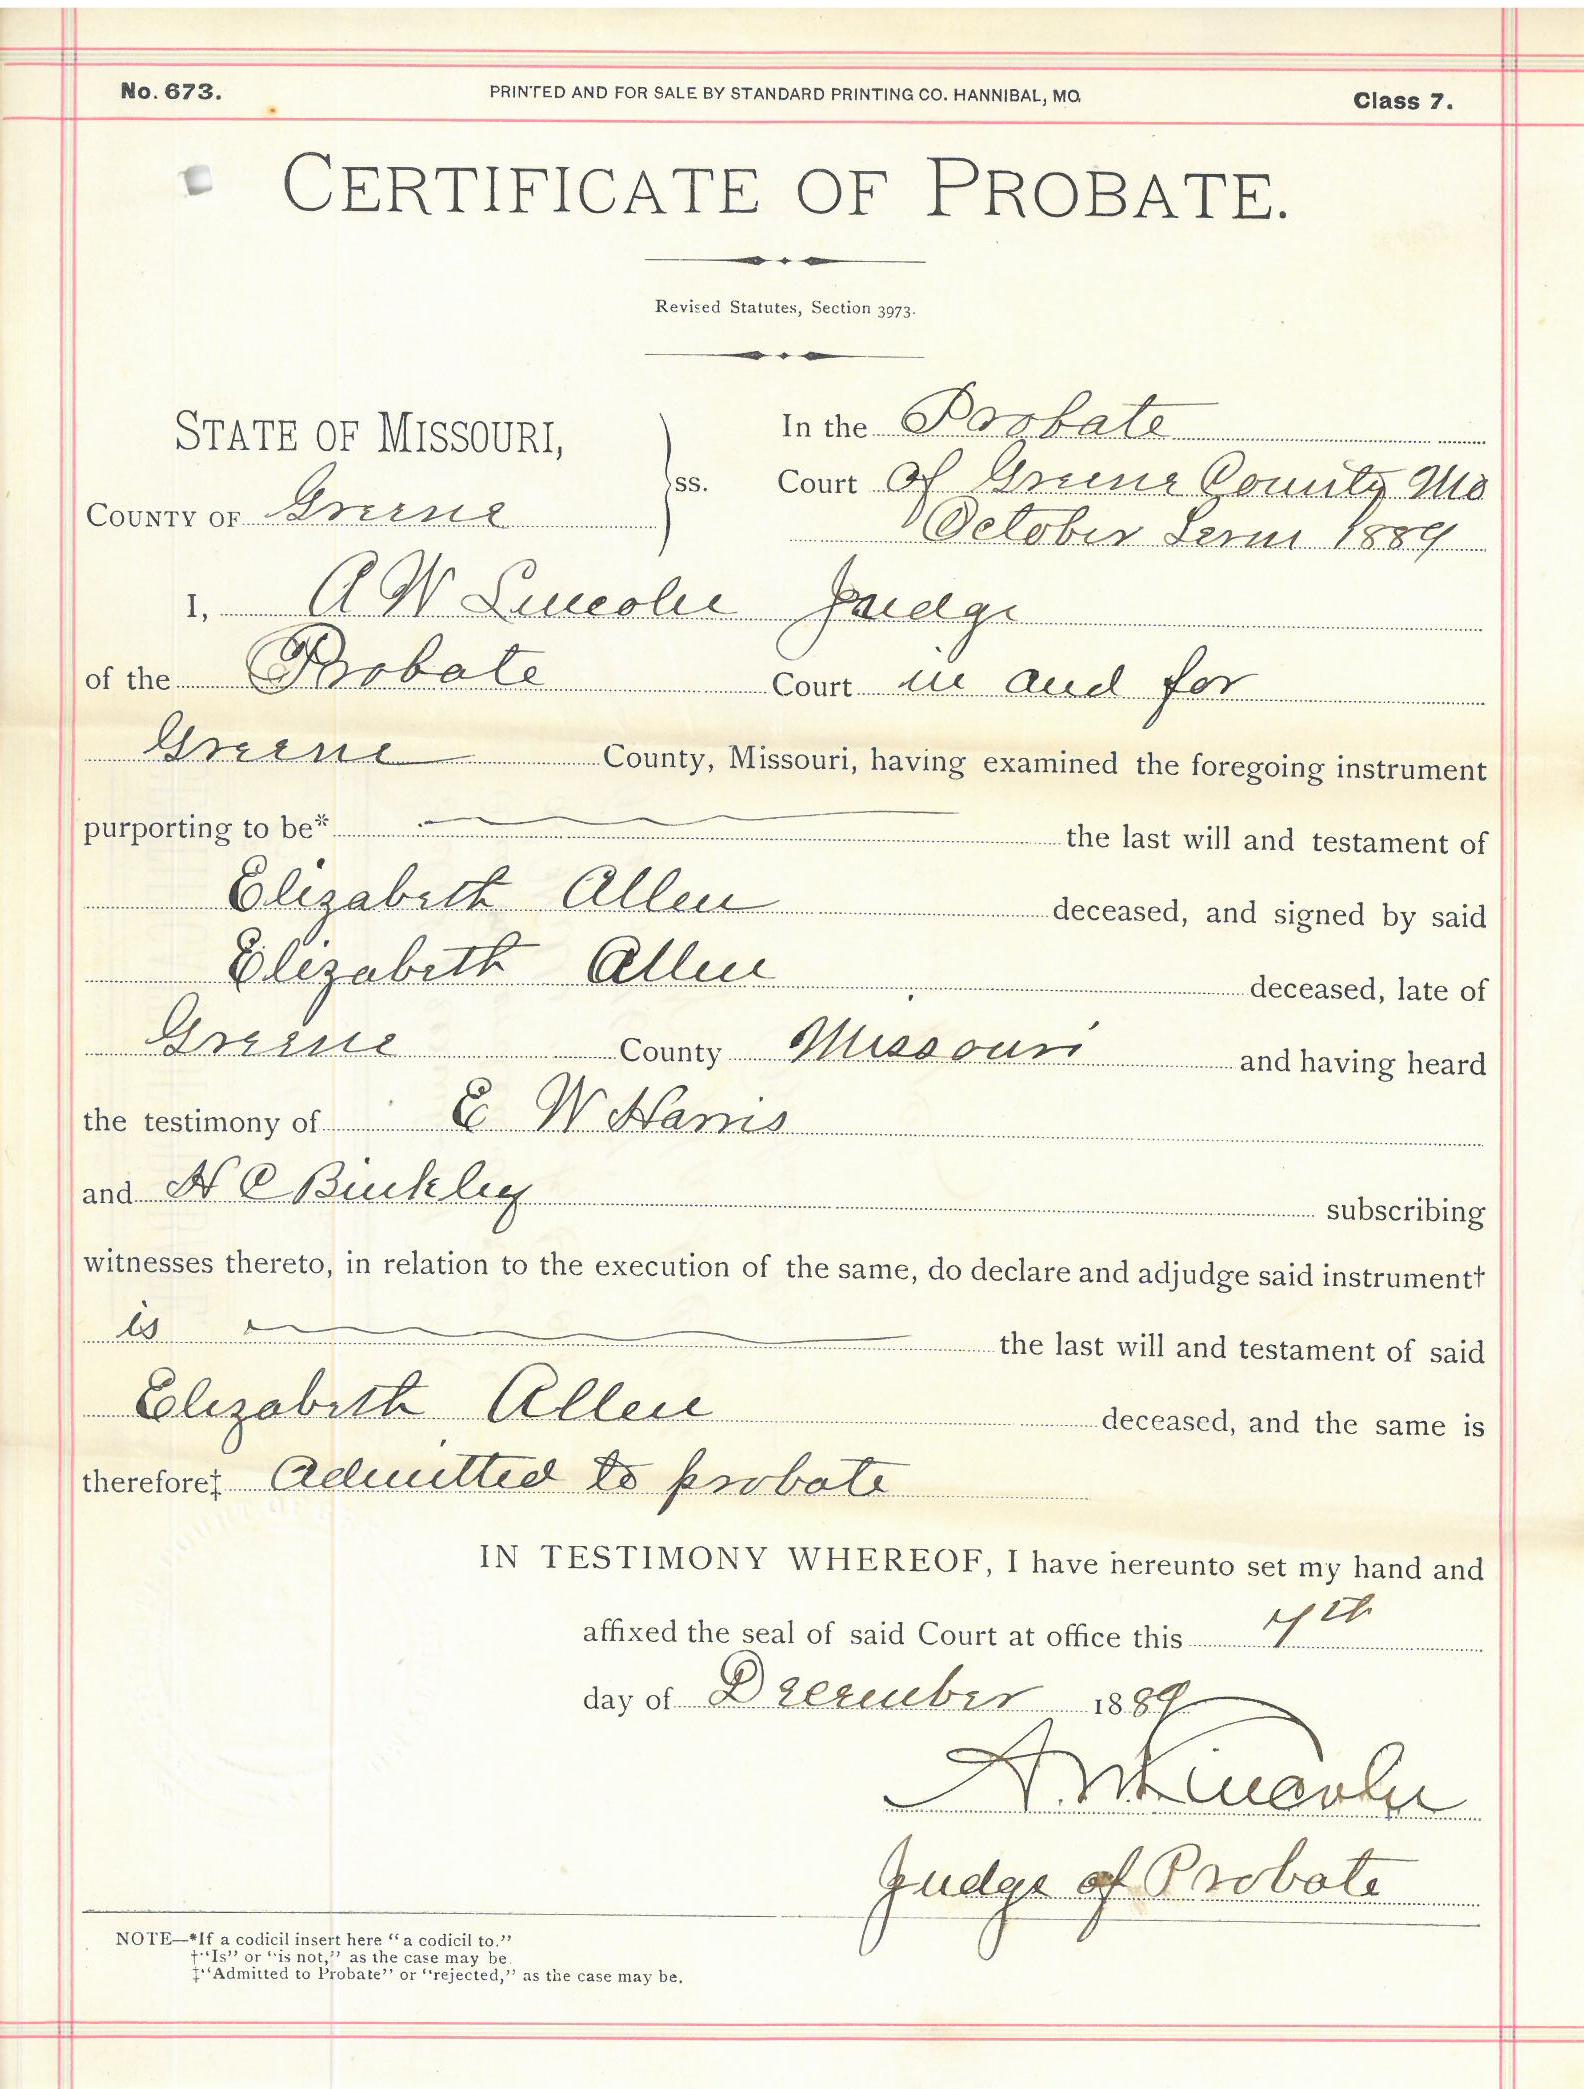 No. 673. PRINTED AND FOR SALE BY STANDARD PRINTING CO. HANNIBAL, MO. Class 7.
CERTIFICATE OF PROBATE.
Revised Statutes, Section 3973.
STATE OF MISSOURI,
COUNTY OF Greene
ss.
In the Probate
Court of Greene County Mo
October Term 1889
I, A W Lincoln Judge
of the Probate Court in and for
Greene County, Missouri, having examined the foregoing instrument
purporting to be* the last will and testament of
Elizabeth Allen deceased, and signed by said
Elizabeth Allen deceased, late of
Greene County Missouri and having heard
the testimony of E W Harris
and H C Binkley subscribing
witnesses thereto, in relation to the execution of the same, do declare and adjudge said instrument†
is the last will and testament of said
Elizabeth Allen deceased, and the same is
therefore‡ Admitted to probate
IN TESTIMONY WHEREOF, I have hereunto set my hand and
affixed the seal of said Court at office this 7th
day of December 1889
A. W. Lincoln
Judge of Probate
NOTE—*If a codicil insert here "a codicil to."
†"Is" or "is not," as the case may be.
‡"Admitted to Probate" or "rejected," as the case may be.